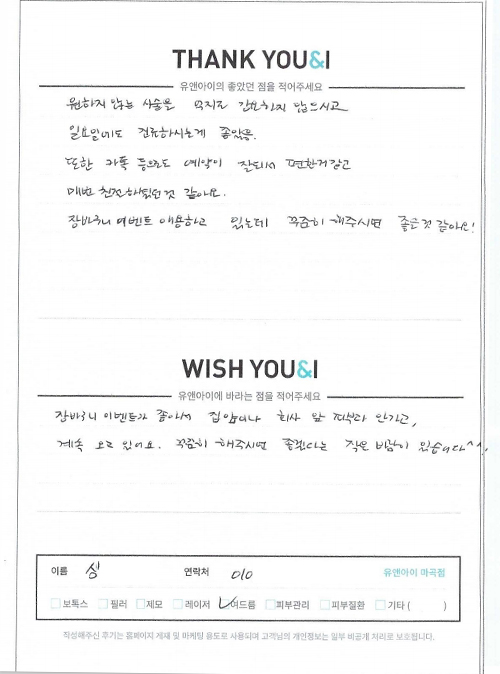 THANK YOU&I
유앤아이의 좋았던 점을 적어주세요
원하지 않는 시술을 억지로 강요하지 않으시고
일요일에도 진료하시는게 좋았음.
또한 카톡 등으로도 예약이 잘되서 편한거같고
매번 친절하셨던것 같아요.
장바구니 이벤트 애용하고 있는데 꾸준히 해주시면 좋을것 같아요!
WISH YOU&I
유앤아이에 바라는 점을 적어주세요
장바구니 이벤트가 좋아서 집앞이나 회사 앞 피부과 안가고,
계속 오고 있어요. 꾸준히 해주시면 좋겠다는 작은 바람이 있습니다^^.
이름 연락처 010 유앤아이 마곡점
보톡스 필러 제모 레이저 여드름 피부관리 피부질환 기타 ( )
작성해주신 후기는 홈페이지 게재 및 마케팅 용도로 사용되며 고객님의 개인정보는 일부 비공개 처리로 보호됩니다.